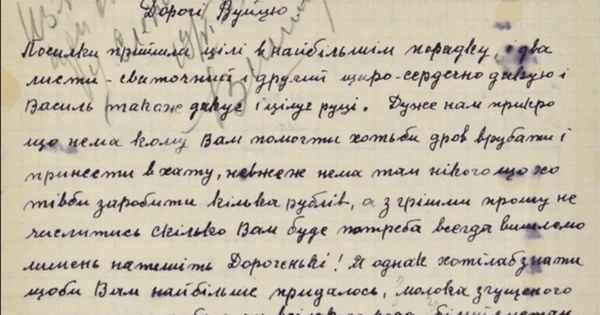 Дорогі Вуйцю
Посилки прийшли цілі в найбільшім порядку, і два
листи - святочний і другий щиро-сердечно дякую і
Василь також дякує і цілує руці. Дуже нам прикро
що нема кому Вам помогти хотьби дров врубати і
принести в хату, невжеж нема там нікого що хо
тівби заробити кілька рублів, а з грішми прошу не
числитись скілько Вам буде потреба всегда вишлемо
лишень напишіть Дорогенькі! Я однак хотілаб знати
щоби Вам найбільше придалось, молока згущеного